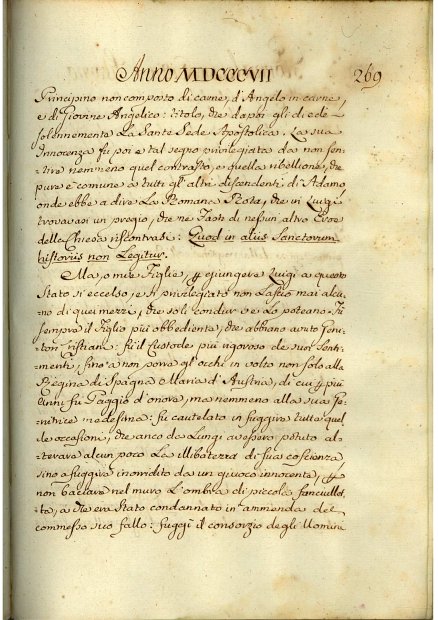 Anno MDCCCVII 269
Principino non composto di carne, d'Angelo in carne,
e di Giovane Angelico: titolo, che dapoi gli diede
solennemente La Sante Sede Apostolica. La sua
Innocenza fu poi e tal segno privilegiata da non sen-
tire nemmeno quel contrasto, e quella ribellione, che
pure è comune a tutti gl'altri discendenti di Adamo,
onde ebbe a dire La Romana Rota, che in Luigi
trovavasi un pregio, che ne Fasti di nessun altro Eroe
della Chiesa riscontrasi: Quod in aliis Sanctorum
historiis non Legitur.
Ma, o mie Figlie, giungeva Luigi a questo
Stato sì eccelso, e sì privilegiato non Lasciò mai alcu-
no di quei mezzi, che soli condurve Lo poteano. Fu
sempre il Figlio più obbediente, che abbiano avuto Geni-
tori Cristiani: fu il Custode più rigoroso de suoi Senti-
menti, fino a non porre gl'occhi in volto non solo alla
Regina di Spagna Maria d'Austria, di cui più
Anni fu Paggio d'onore, ma nemmeno alla sua Ge-
nitrice medesima: fu cautelato in fuggire tutte quel-
le occasioni, che anco da Lungi avessero potuto al-
terare alcun poco La illibatezza di sua coscienza
sino a fuggire inorridito da un giuoco innocente,
non baciare nel muro L'ombra di piccola fanciullet-
ta, a che era Stato condannato in ammenda del
commesso suo fallo: fuggì il consorzio degli Uomini